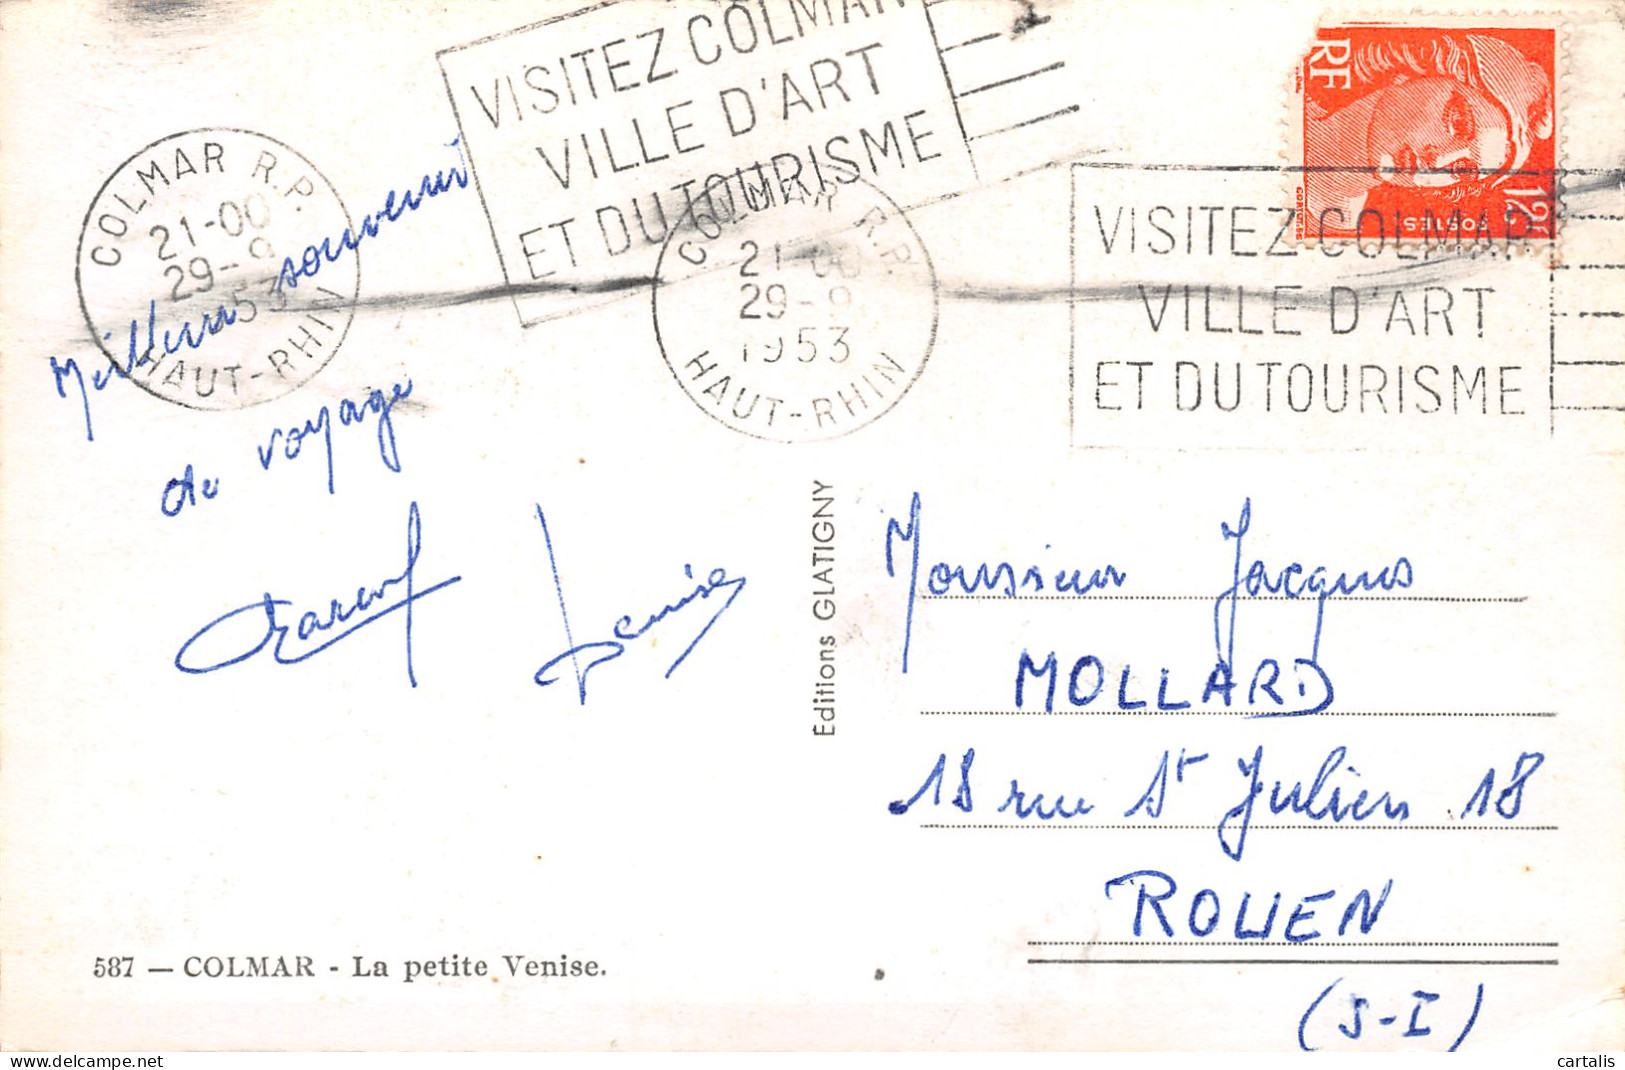 VISITEZ COLMAR
VILLE D'ART
ET DU TOURISME
COLMAR R.P.
21-00
29-8
53
HAUT-RHIN
COLMAR R.P.
21-00
29-8
1953
HAUT-RHIN
VISITEZ COLMAR
VILLE D'ART
ET DU TOURISME
RF
POSTES
12F
Meilleur souvenir
de voyage
Denise
Editions GLATIGNY
Monsieur Jacques
MOLLARD
18 rue St Julien 18
ROUEN
(S-I)
587 — COLMAR - La petite Venise.
delcampe.net
cartalis